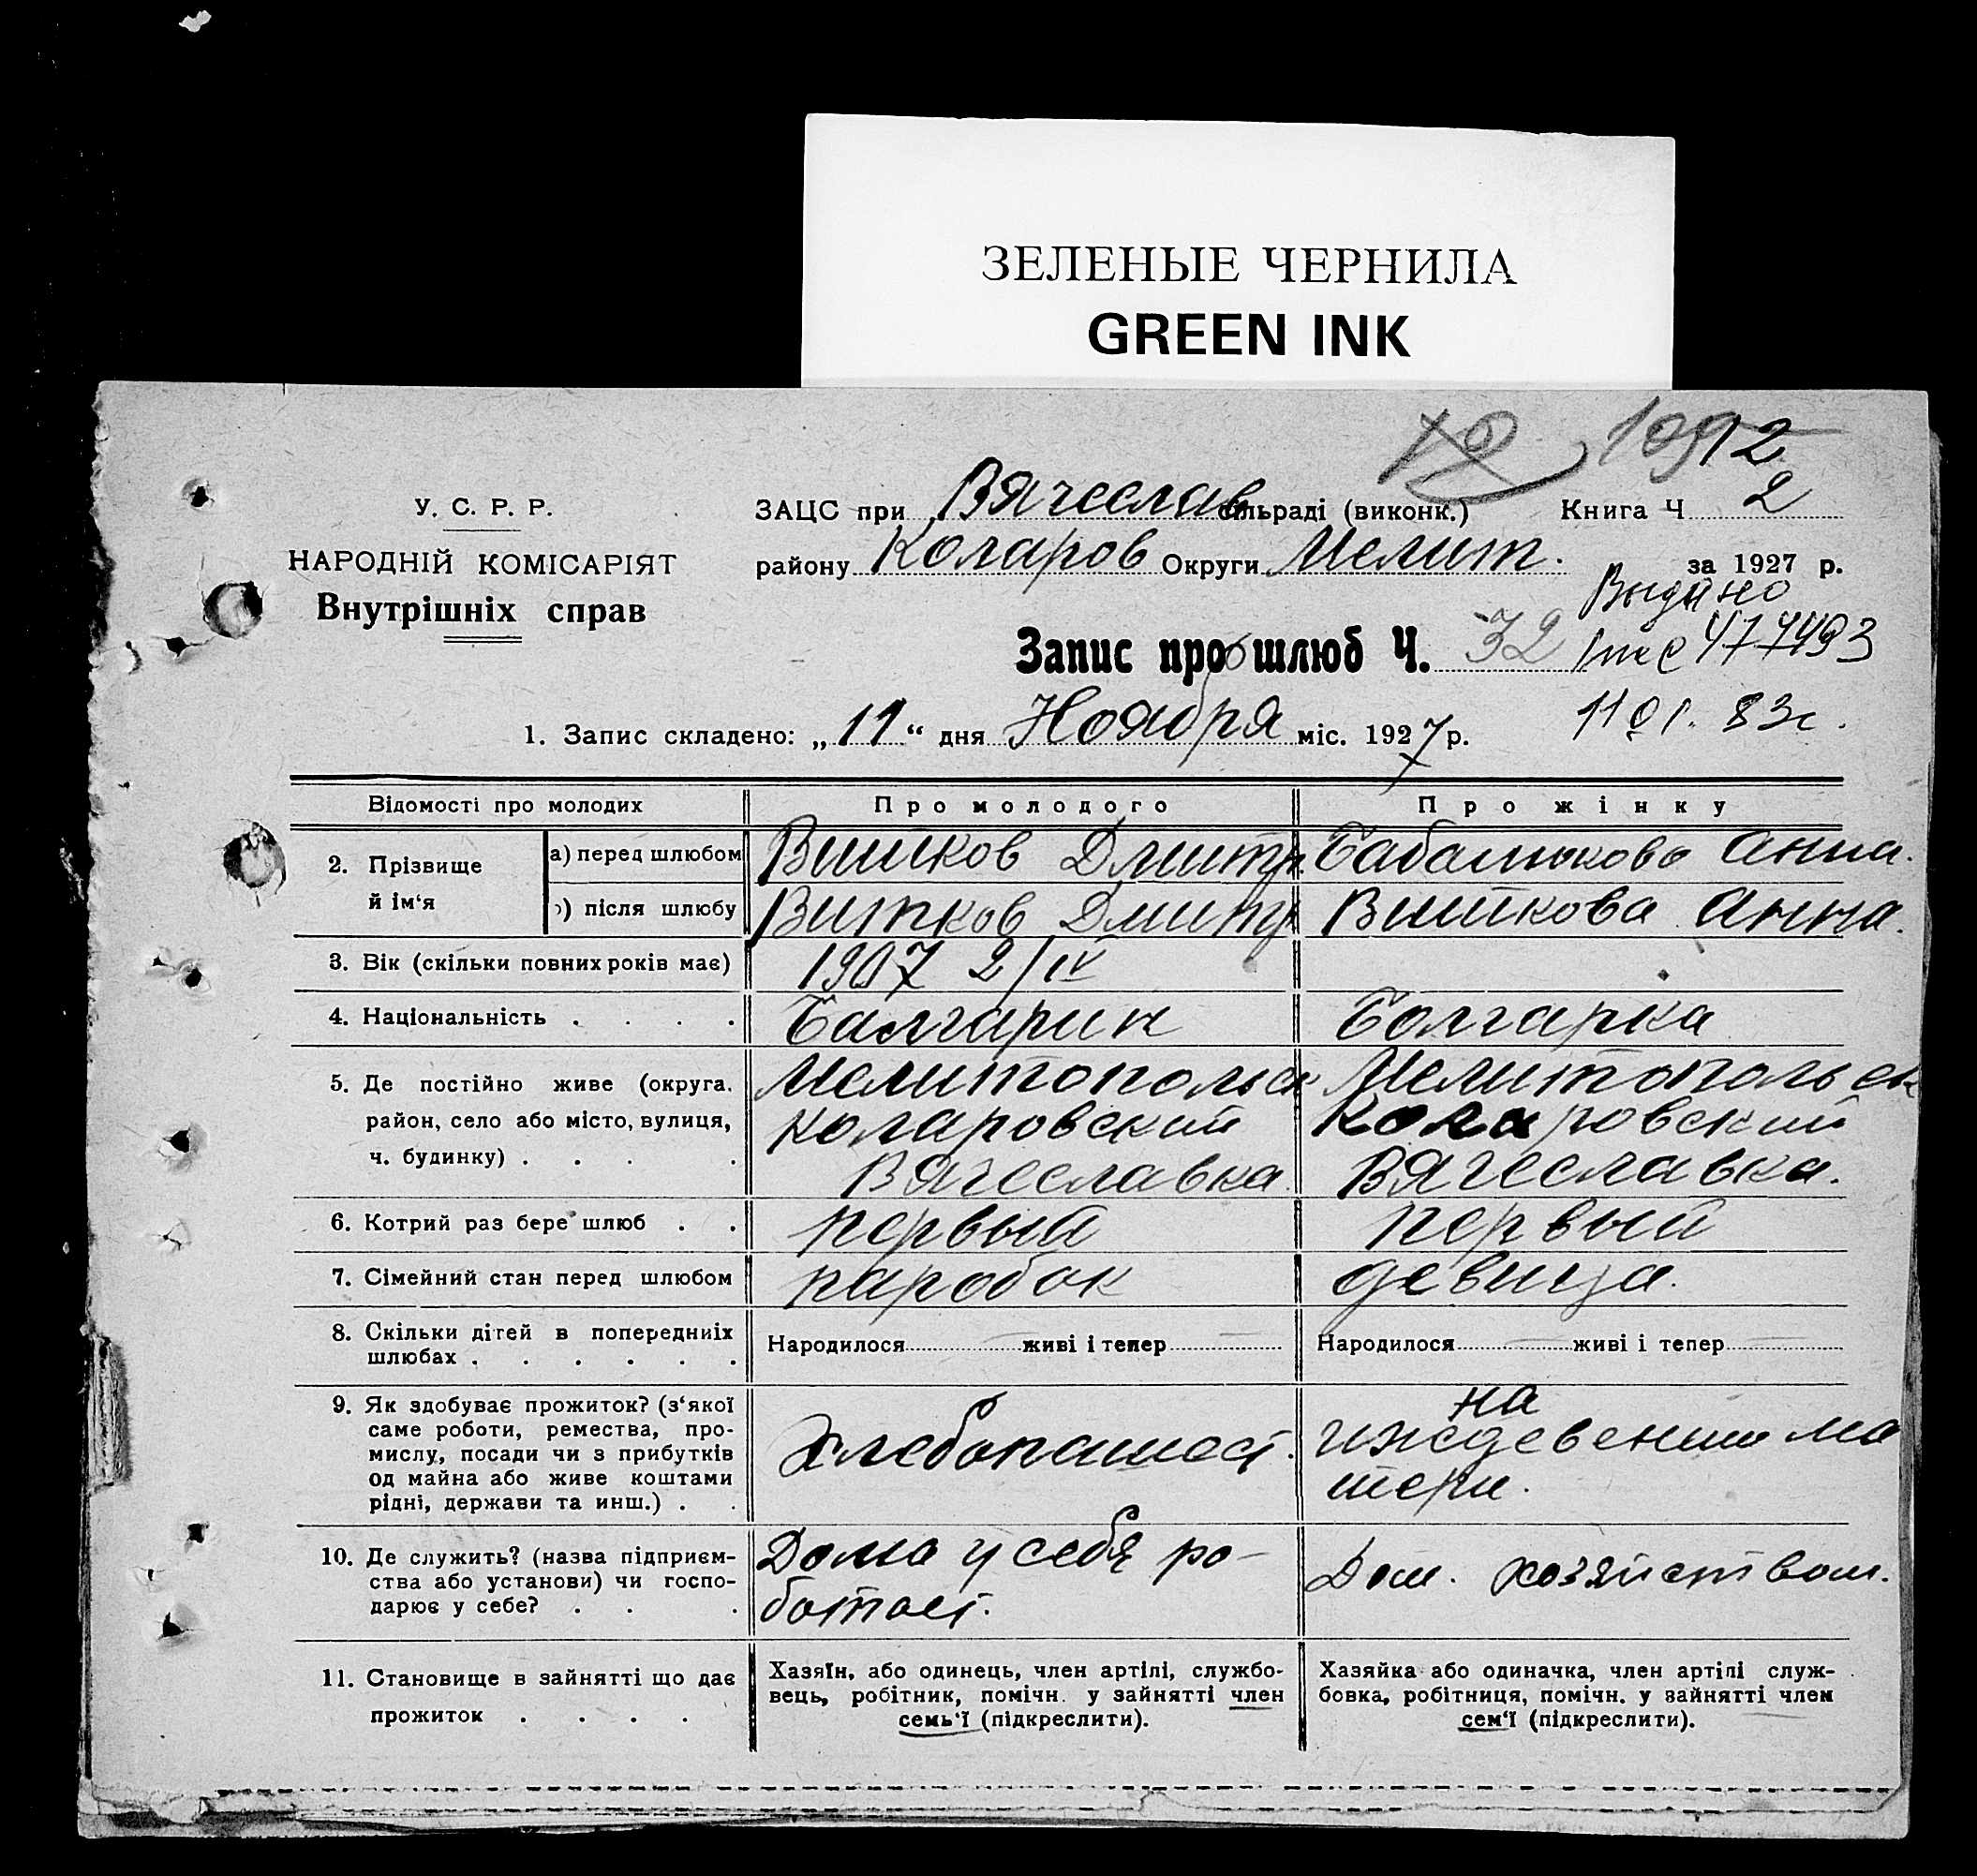 ЗЕЛЕНЫЕ ЧЕРНИЛА
GREEN INK
12
У. С. Р. Р.
ЗАЦС при Вячеслав сільраді (виконк.) Книга Ч 2
НАРОДНІЙ КОМІСАРІЯТ
району Коларов Округи Мелит. за 1927 р.
Внутрішніх справ
Выдано
Запис про шлюб Ч. 32
477493
1. Запис складено: „11“ дня Ноября міс. 1927 р.
11 01. 83г.
Відомості про молодих Про молодого Про жінку
2. Прізвище й ім‘я
а) перед шлюбом Витков Дмитр. Анна.
після шлюбу Витков Дмитр Виткова Анна.
3. Вік (скільки повних років має) 1907 2/IV
4. Національність . . . . Балгарин Болгарка
5. Де постійно живе (округа. Мелитопольск Мелитопольск
район, село або місто, вулиця, Коларовский Коларовский
ч. будинку) . . . . Вячеславка. Вячеславка.
6. Котрий раз бере шлюб . . первый первый
7. Сімейний стан перед шлюбом паробок девица.
8. Скільки дітей в попередніх Народилося живі і тепер Народилося живі і тепер
шлюбах . . . . . .
9. Як здобуває прожиток? (з‘якої
саме роботи, ремества, про-
мислу, посади чи з прибутків
од майна або живе коштами
рідні, держави та инш.) . .
Хлебопашест.
на
иждевении ма
тери.
10. Де служить? (назва підприєм-
ства або установи) чи госпо-
дарює у себе? . . .
Дома у себя ро-
ботает.
Дом. хозяйством.
11. Становище в зайнятті що дає
прожиток . . . .
Хазяїн, або одинець, член артілі, службо-
вець, робітник, помічн. у зайнятті член
семь‘ї (підкреслити).
Хазяйка або одиначка, член артілі служ-
бовка, робітниця, помічн. у зайнятті член
сем‘ї (підкреслити).